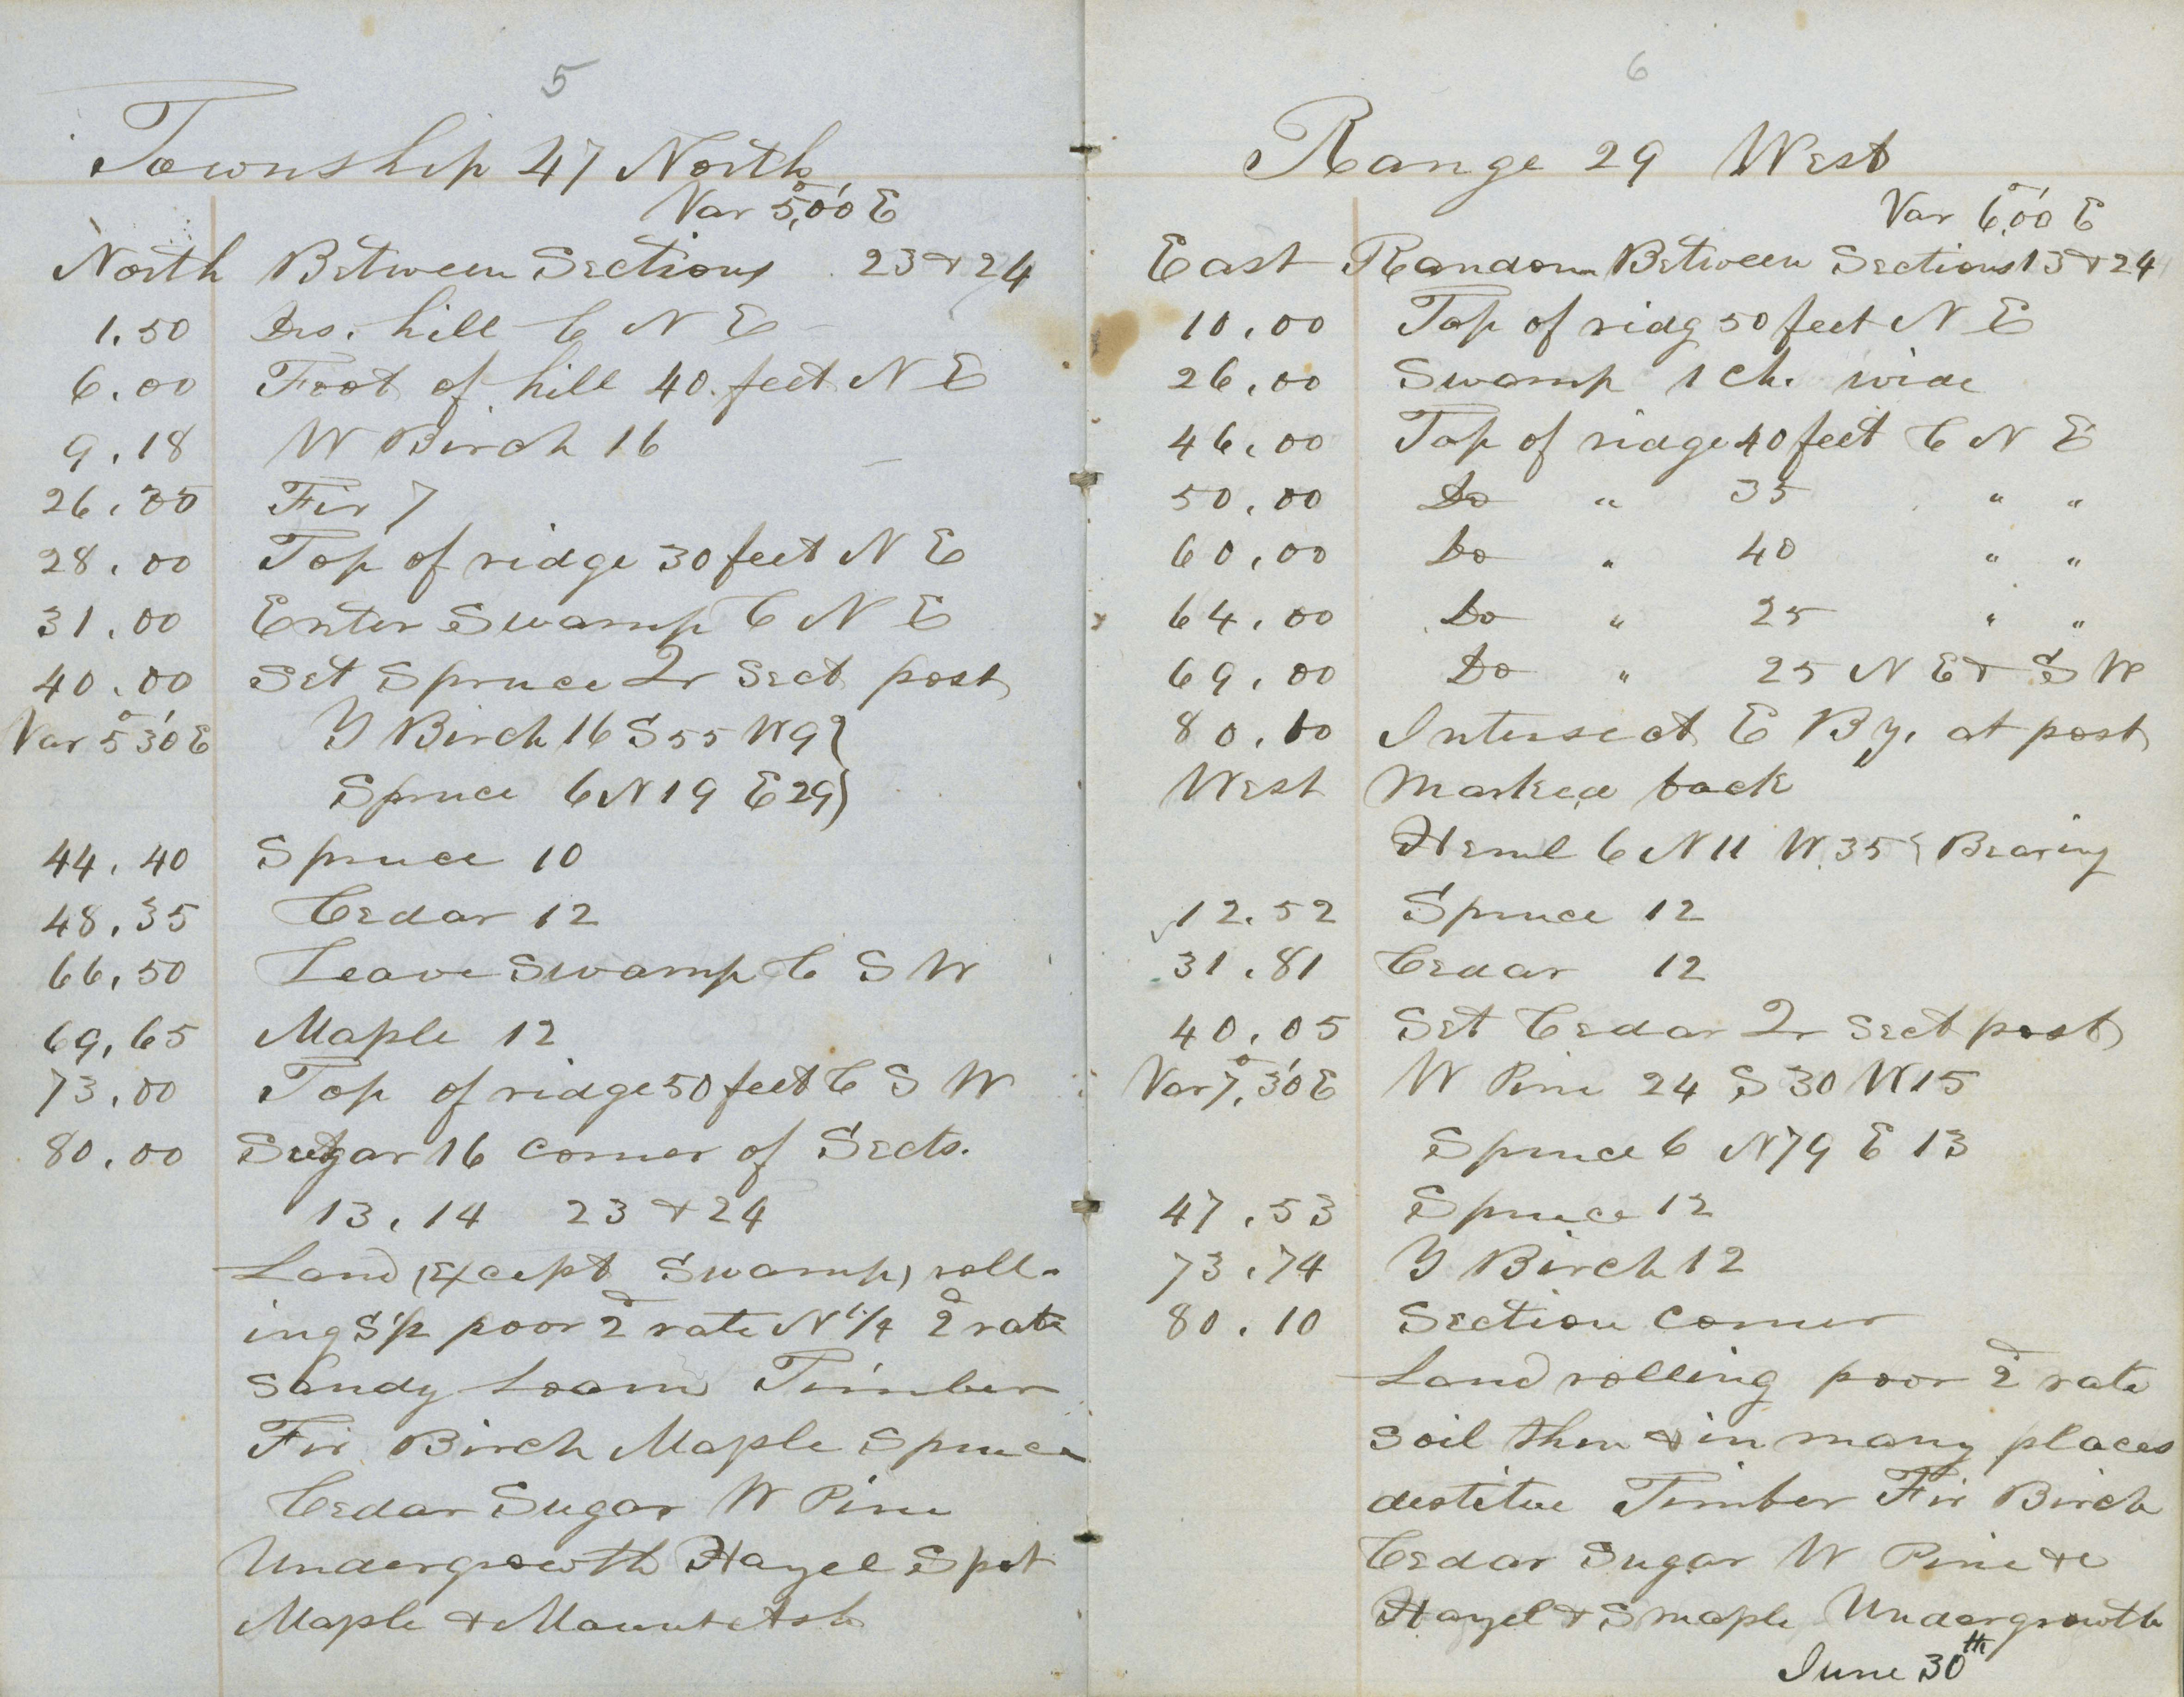 5
Township 47 North
Var 5°,00' E
North Between Sections 23 & 24
1.50 Des. hill C N E
6.00 Foot of hill 40 feet N E
9.18 W Birch 16
26.35 Fir 7
28.00 Top of ridge 30 feet N E
31.00 Enter Swamp C N E
40.00 Set Spruce Qr Sect post
Var 5°30' E Y Birch 16 S 55 W 9}
Spruce 6 N 19 E 29}
44.40 Spruce 10
48.35 Cedar 12
66.50 Leave Swamp C S W
69.65 Maple 12
73.00 Top of ridge 50 feet C S W
80.00 Sugar 16 corner of Sects.
13, 14 23 & 24
Land (Except Swamp) roll-
ing S ½ poor 2d rate N ¼ 2d rate
Sandy Loam Timber
Fir Birch Maple Spruce
Cedar Sugar W Pine
Undergrowth Hazel Spot
Maple & Mount Ash
6
Range 29 West
Var 6°,00' E
East Random Between Sections 13 & 24
10.00 Top of ridg 50 feet N E
26.00 Swamp 1 Ch. wide
46.00 Top of ridge 40 feet C N E
50.00 Do " 35 " "
60.00 Do " 40 " "
64.00 Do " 25 " "
69.00 Do " 25 N E & S W
80.10 Intersect E By. at post
West Marked back
Heml 6 N 11 W 35 } Bearing
12.52 Spruce 12
31.81 Cedar 12
40.05 Set Cedar Qr Sect post
Var 7°,30' E W Pine 24 S 30 W 15
Spruce 6 N 79 E 13
47.53 Spruce 12
73.74 Y Birch 12
80.10 Section Corner
Land rolling poor 2d rate
Soil thin & in many places
destitue Timber Fir Birch
Cedar Sugar W Pine &c
Hazel & S maple Undergrowth
June 30th